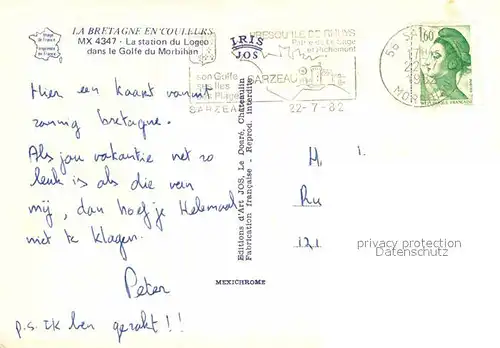 LA BRETAGNE EN COULEURS
MX 4347 - La station du Logeo
dans le Golfe du Morbihan
IRIS
JOS
PRESQU'ILE DE RHUYS
son Golfe
ses Iles
ses Plages
SARZEAU
SARZEAU
22-7-82
56 SA
22-7
1982
MORBIHAN
1,60
Hier een kaart vanuit
zonnig bretagne.
Als jou vakantie net zo
leuk is als die van
mij, dan hoef je Helemaal
niet te klagen.
Peter
p.s. ik ben gezakt!!
Editions d'Art JOS, Le Doaré, Châteaulin
Fabrication française - Reprod. interdite
MEXICHROME
privacy protection
Datenschutz